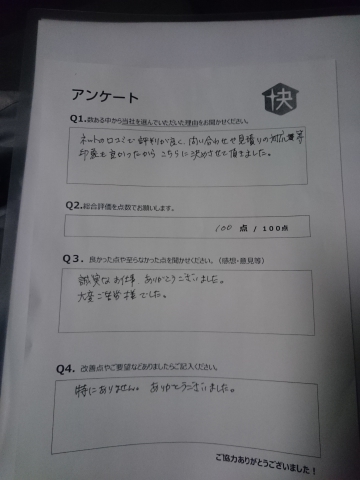 快
アンケート
Q1.数ある中から当社を選んでいただいた理由をお聞かせください。
ネットの口コミで評判が良く、問い合わせや見積りの対応等
印象も良かったから こちらに決めさせて頂きました。
Q2.総合評価を点数でお願いします。
100 点 / 100点
Q3. 良かった点や至らなかった点を聞かせてください。(感想・意見等)
誠実なお仕事 ありがとうございました。
大変ご苦労様でした。
Q4. 改善点やご要望などありましたらご記入ください。
特にありません。 ありがとうございました。
ご協力ありがとうございました!